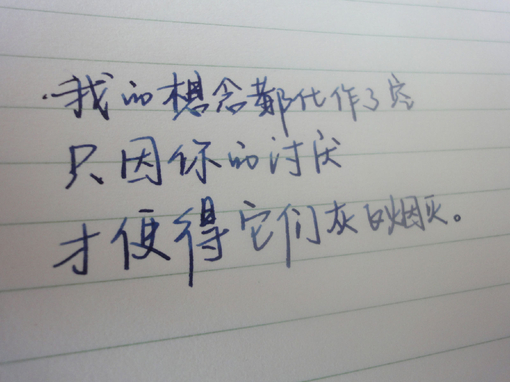 我的想念都化作了空
只因你的讨厌
才使得它们灰的烟灭。